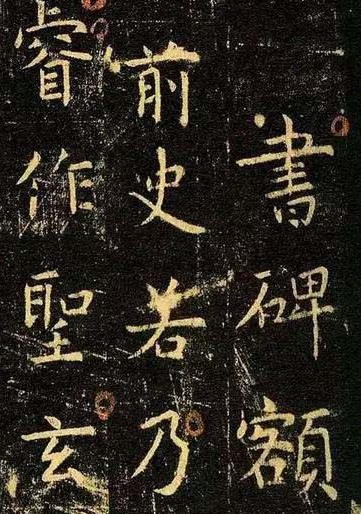 書碑額
前史若乃
睿作聖玄